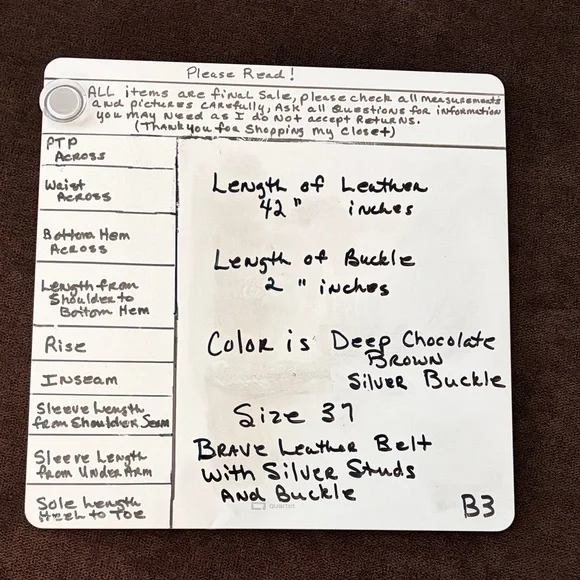 Please Read!
ALL items are final Sale, please check all measurements
and pictures carefully, Ask all Questions for information
you may need as I do Not accept Returns.
(Thank you for Shopping my Closet)
PTP
Across
Waist
Across
Bottom Hem
Across
Length from
Shoulder to
Bottom Hem
Rise
Inseam
Sleeve Length
from Shoulder Seam
Sleeve Length
from Under Arm
Sole Length
Heel to Toe
Length of Leather
42 " inches
Length of Buckle
2 " inches
Color is Deep Chocolate
Brown
Silver Buckle
Size 37
Brave Leather Belt
with Silver Studs
And Buckle
quartet
B3